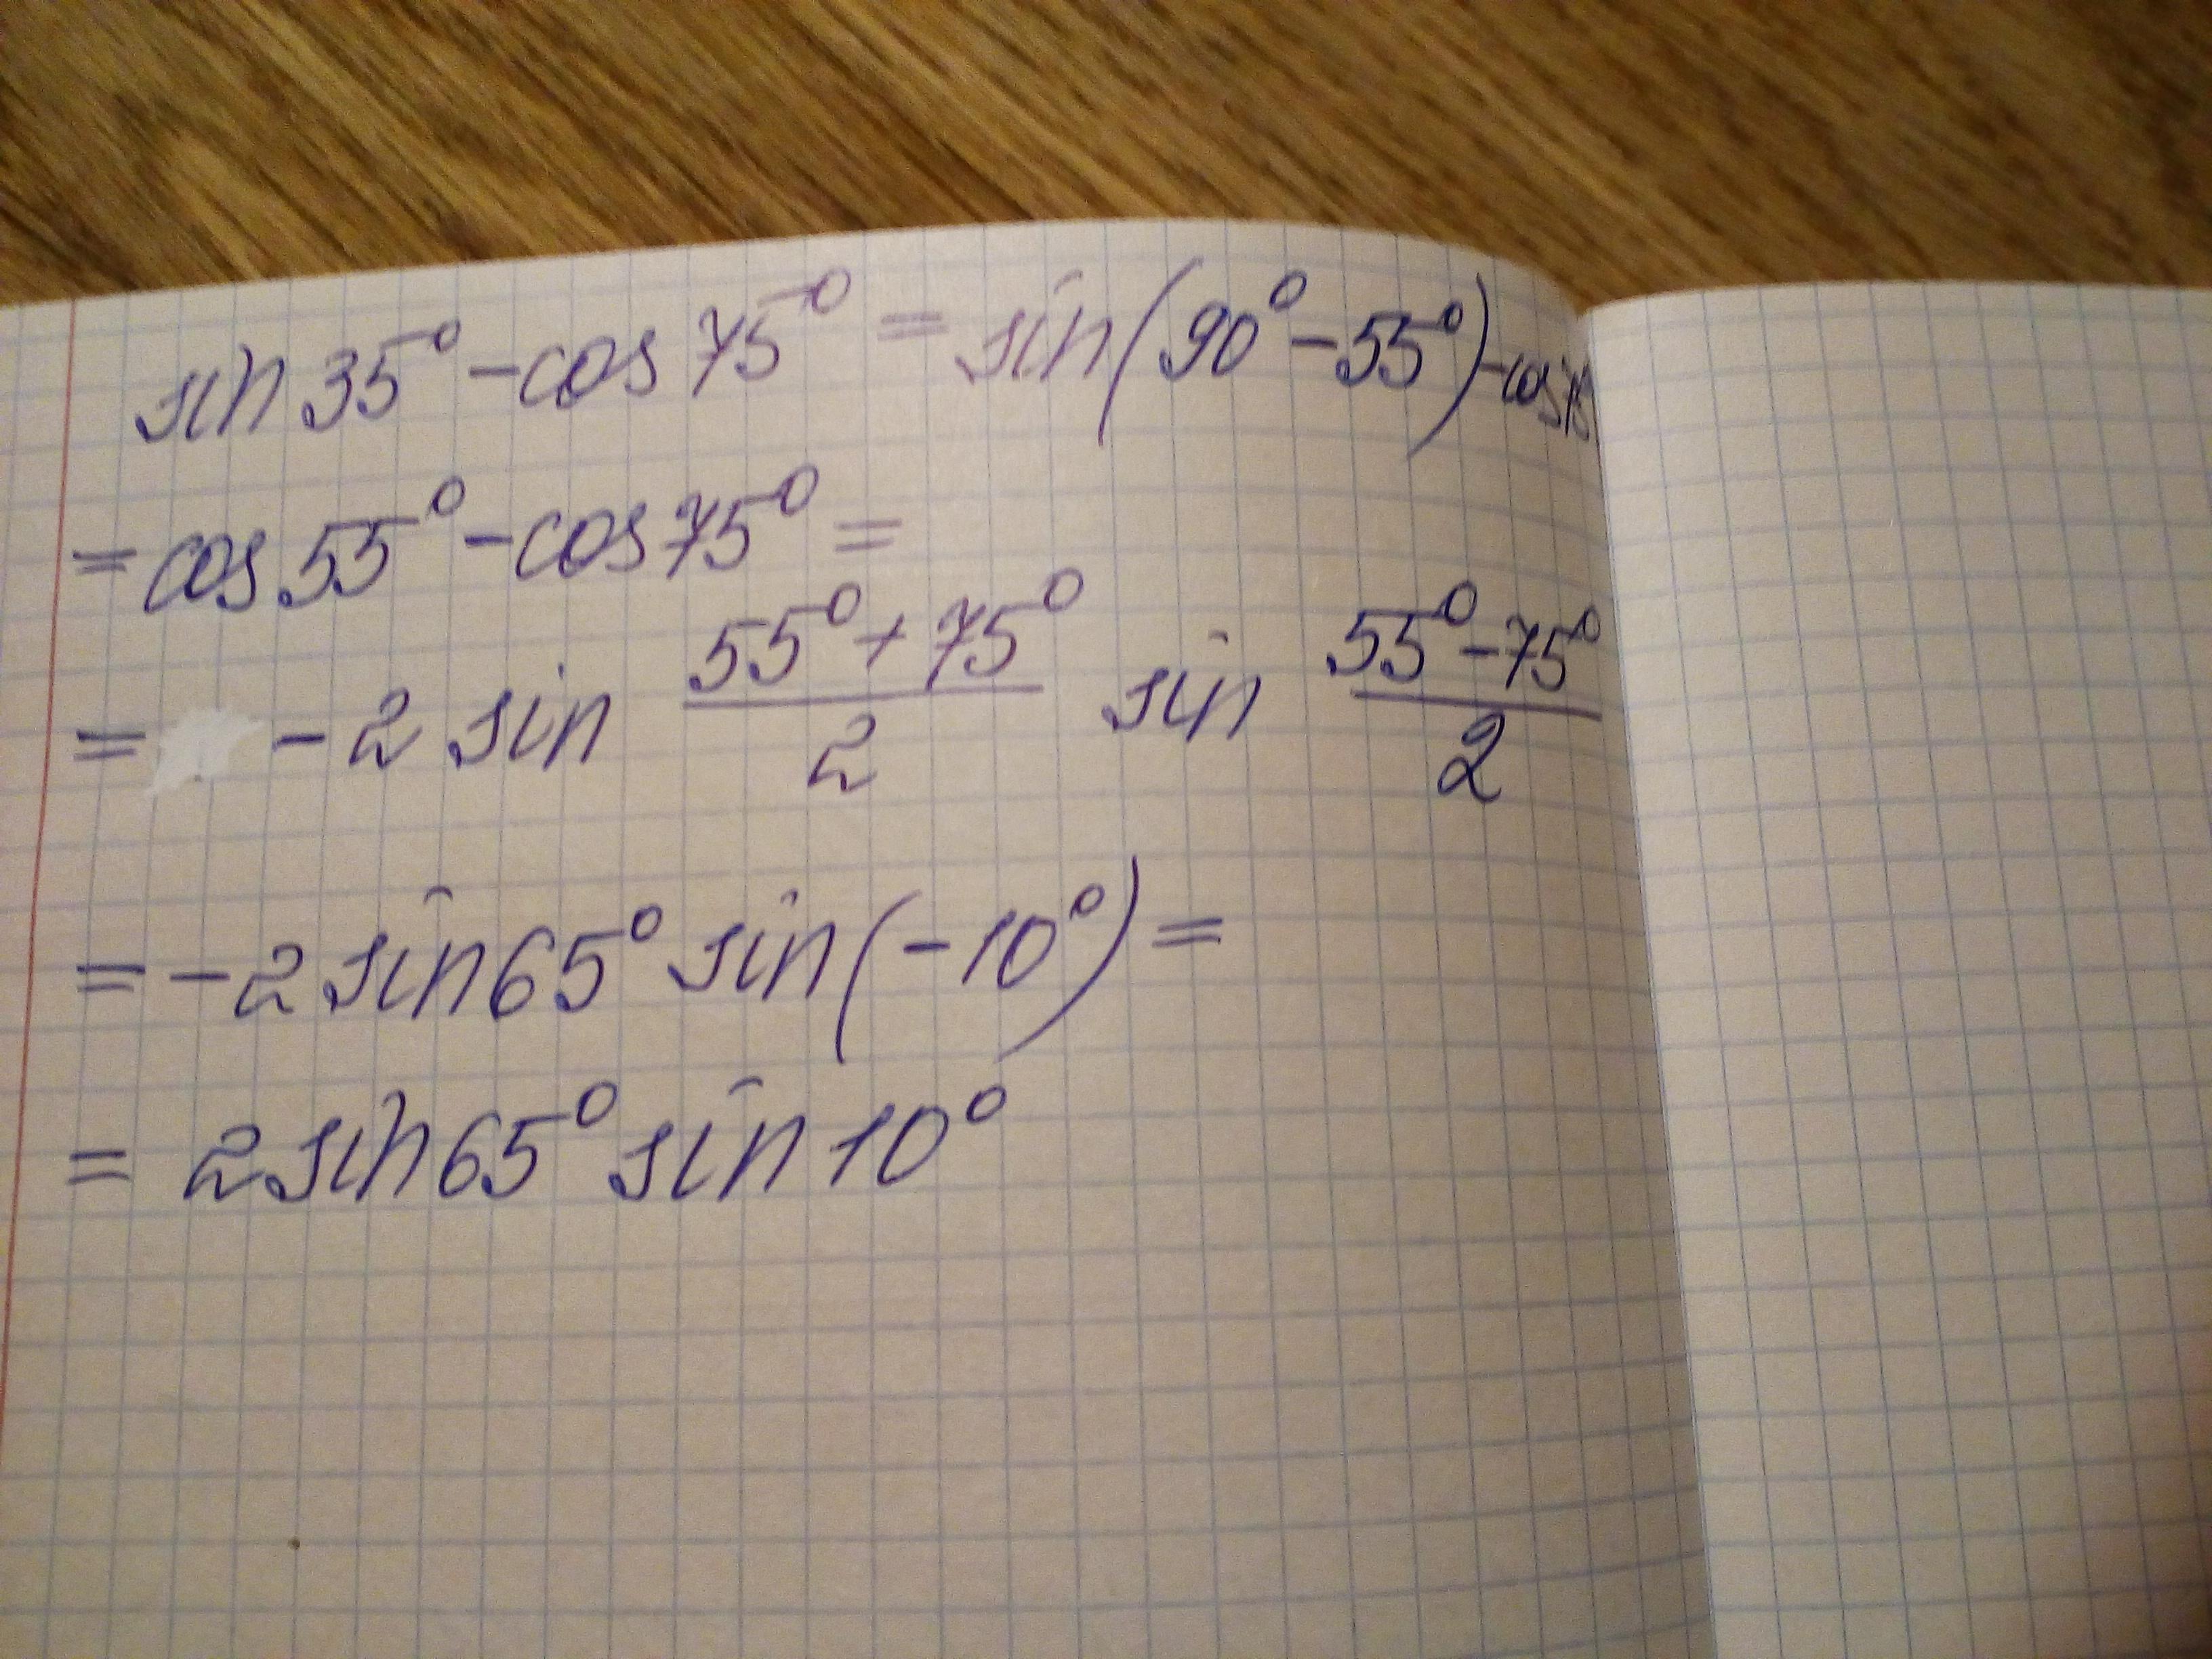 sin 35° - cos 75° = sin (90° - 55°) - cos 75
= cos 55° - cos 75° =
= - 2 sin (55° + 75°)/2 sin (55° - 75°)/2
= - 2 sin 65° sin (-10°) =
= 2 sin 65° sin 10°